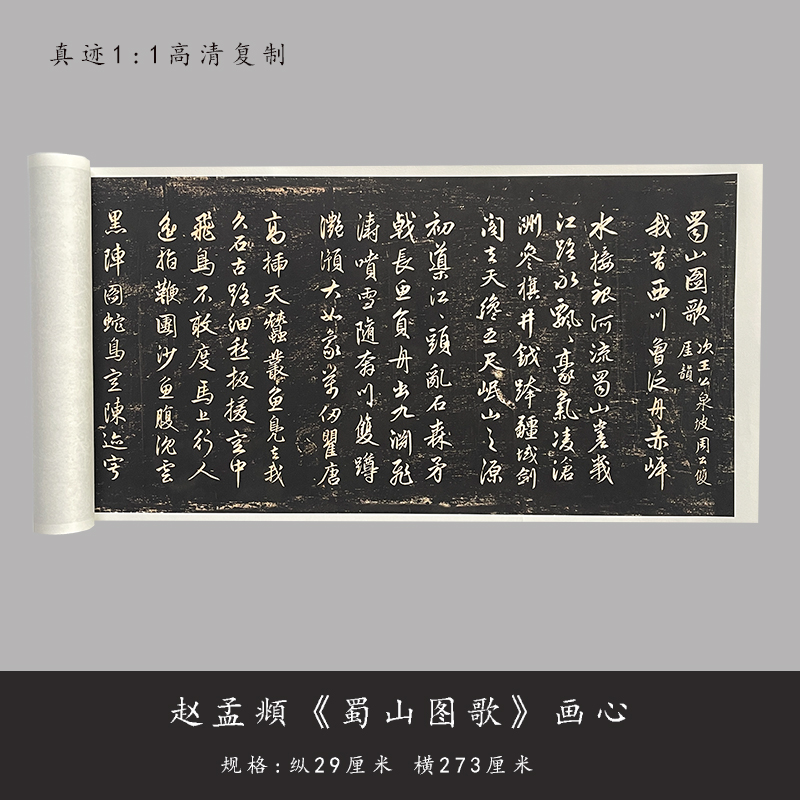 真迹1:1高清复制
蜀山图歌 次王公泉坡周公俊
厓韻
我昔西川曾泛舟赤岸
水接銀河流蜀山峇嶻
江路永飄飄豪氣凌滄
洲參橫井鉞跨疆域劍
閣去天纔五尺岷山之源
初導江江頭亂石森矛
戟長魚負舟出九淵飛
濤噴雪隨奔川雙蹲
灧澦大如象岩份瞿唐
高插天蠶叢魚鳧去我
久石古路细愁扳援空中
飛鳥不敢度馬上行人
坐指鞭團沙魚腹沈雲
黑陣圖蛇鳥空陳迹宇
赵孟頫《蜀山图歌》画心
规格:纵29厘米 横273厘米